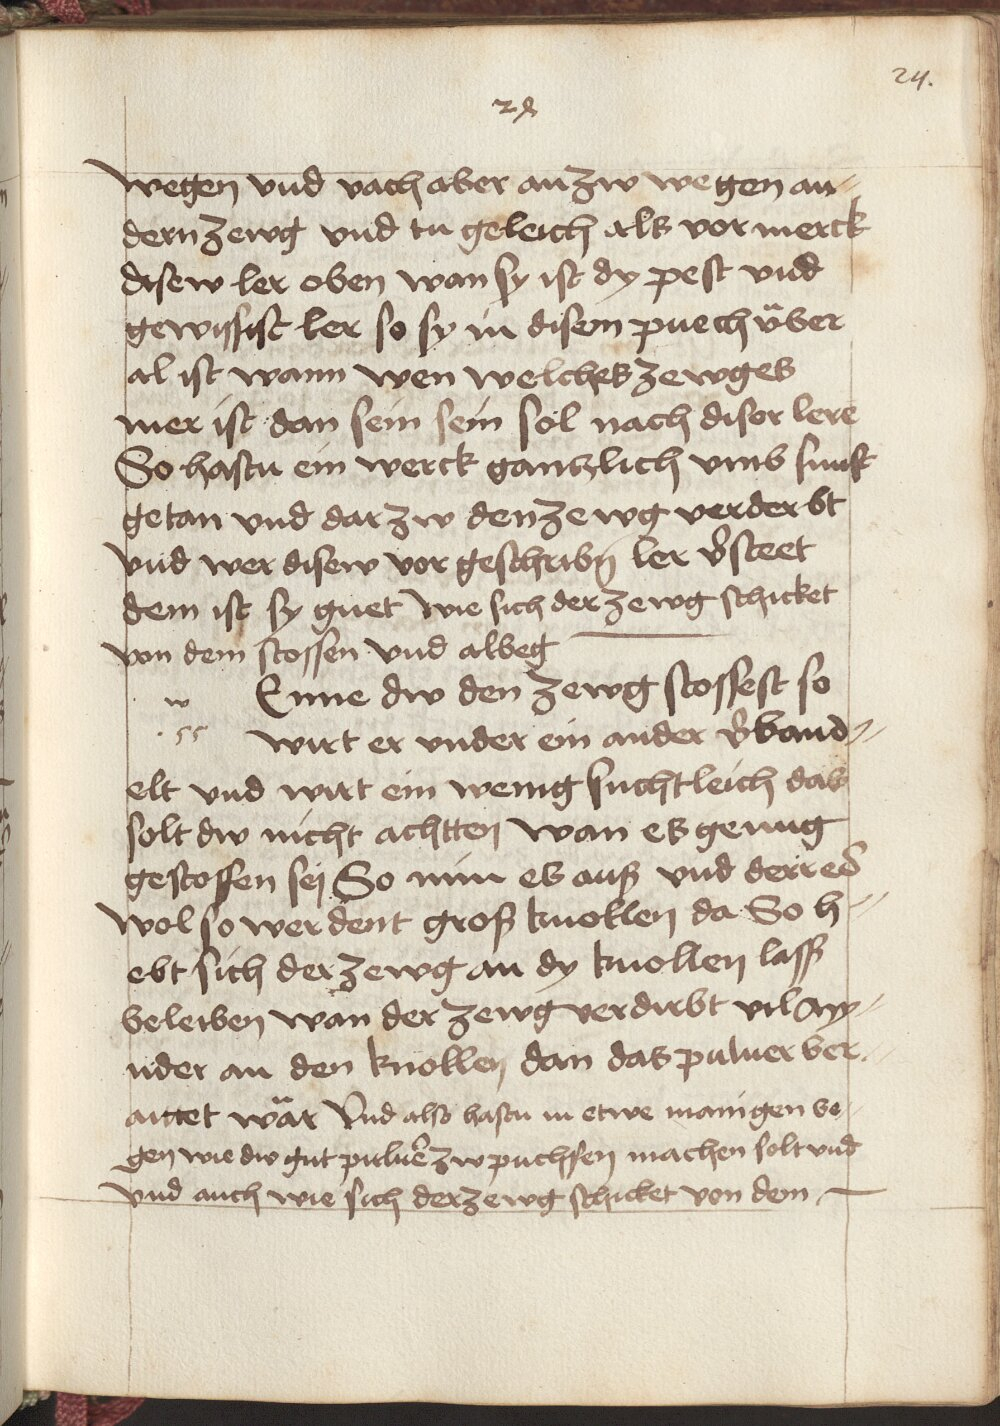 24.
24
wegen vnd vach aber an zw wegen an-
dern zewg vnd tu geleich als vor merck
disew ler oben wan sy ist dy pest vnd
gewissist ler so sy in disem puech über
al ist wann wen welches zewges
mer ist dan sein sein sol nach diser lere
So hastu ein werck gantzlich vmb sunst
getan vnd dar zw den zewg verderbt
vnd wer disew vor geschribn ler v̄steet
dem ist sy guet wie sich der zewg schicket
von dem stossen vnd albeg
Enne dw den zewg stossest so
w
wirt er vnder ein ander v̄band-
elt vnd wirt ein wenig fuchtleich das
solt dw nicht achtten wan es genug
gestossen sej So nim es auß vnd derr es
wol so werdent groß knollen da So h-
ebt sich der zewg an dy knollen lass
beleiben wan der zewg verdirbt vil myn-
nder an den knollen dan das puluer ber-
aittet wär Vnd also hastu in etwe manigen be-
gen wie dw gut puluer̄ zw puchsen machen solt vnd
vnd auch wie sich der zewg schicket von dem